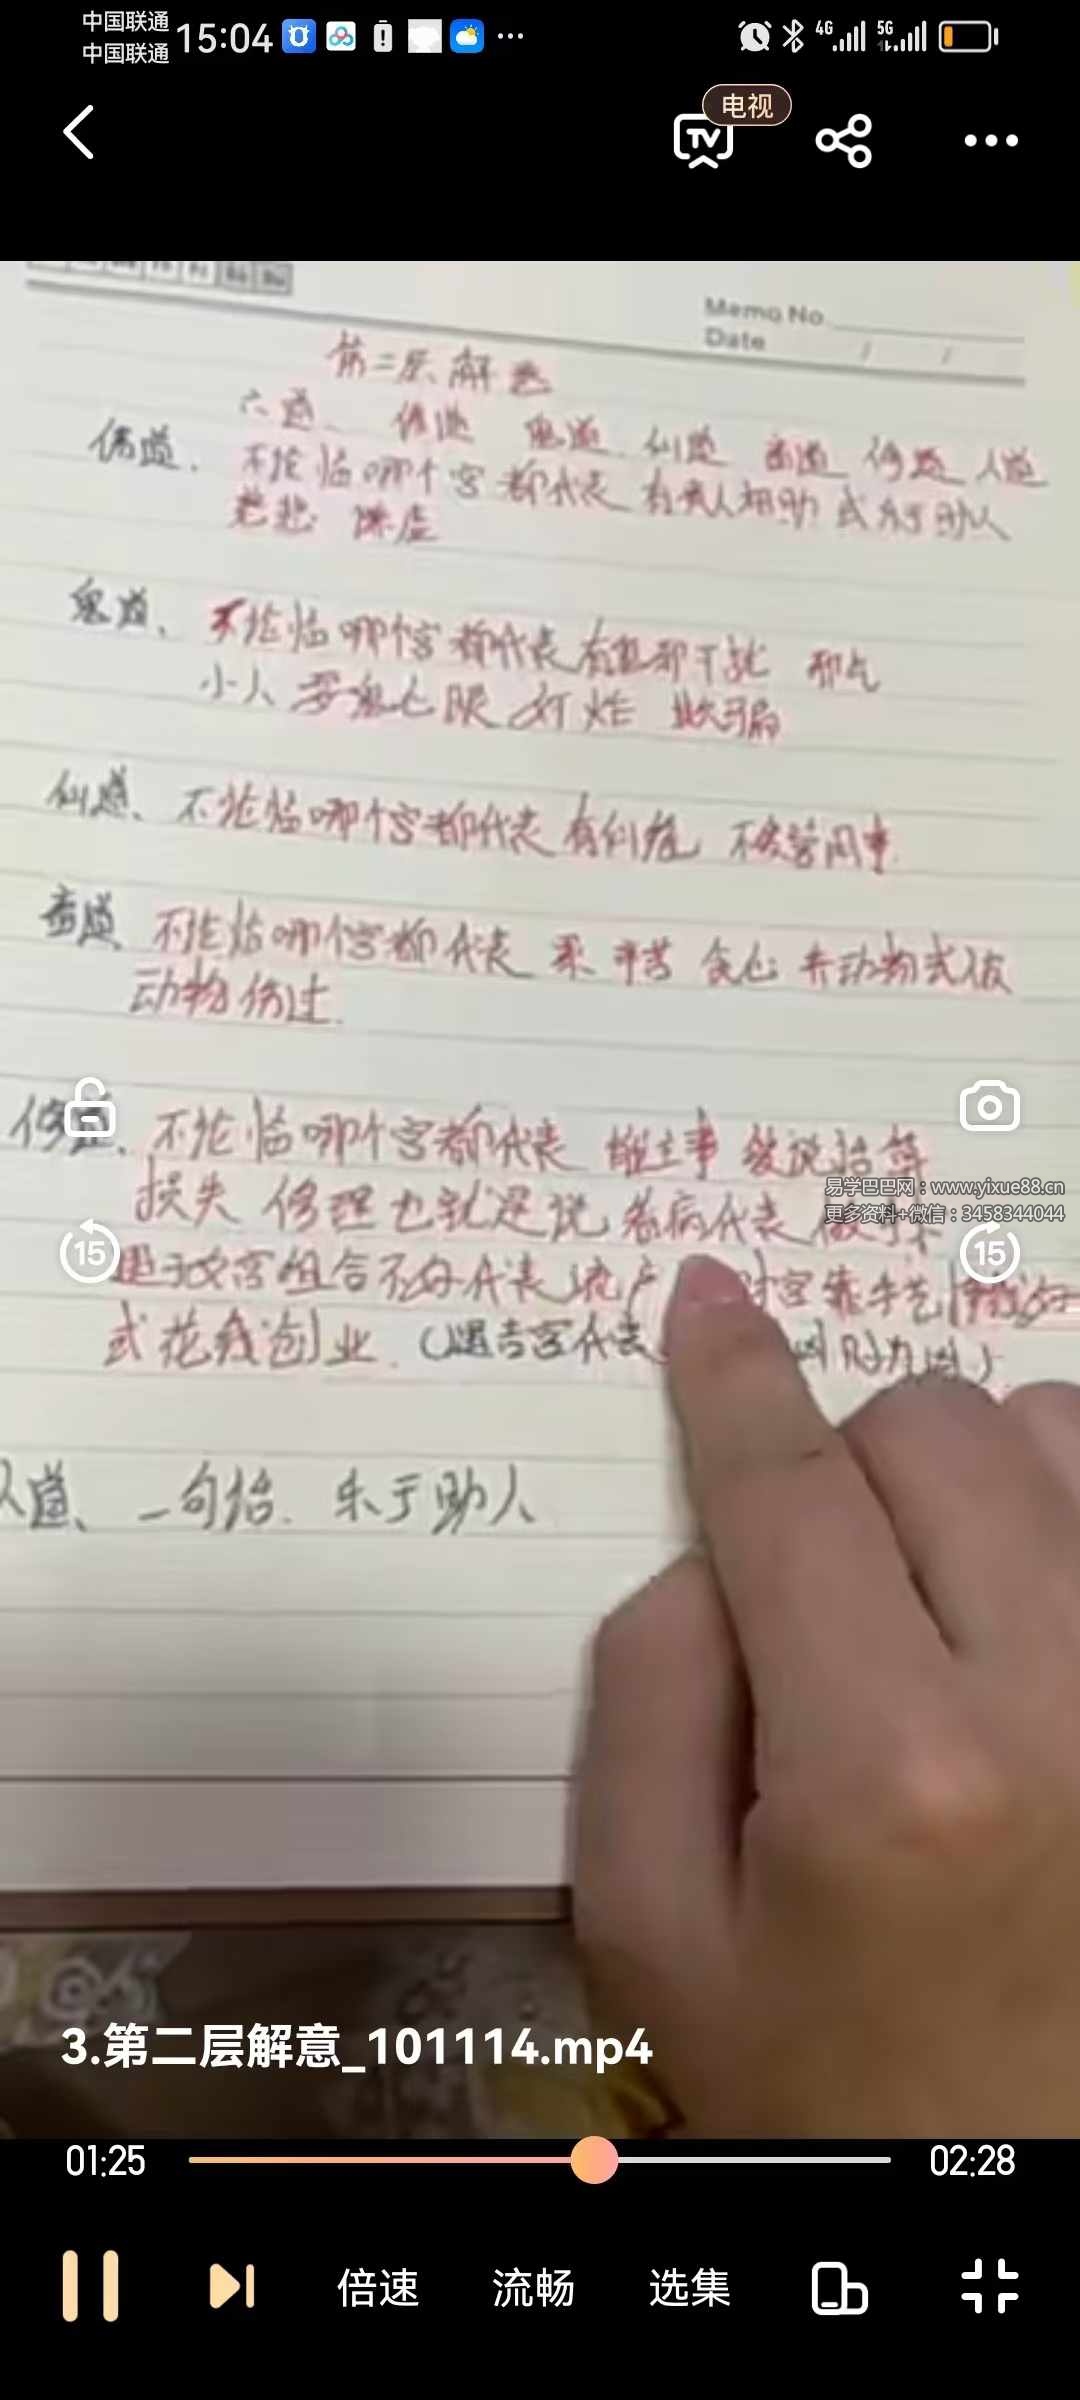 中国联通
中国联通
15:04
4G
5G
电视
TV
Memo No.
Date / /
第二层解意
六道、 佛道 鬼道 仙道 畜道 修道 人道
佛道、 不论临哪个宫都代表 有贵人相助 或 乐于助人
慈悲 谦虚
鬼道、 不论临哪个宫都代表 有鬼邪干扰 邪气
小人 耍鬼心眼 奸炸 欺骗
仙道、 不论临哪个宫都代表 有仙缘 不爱管闲事
畜道 不论临哪个宫都代表 累 辛苦 贪心 养动物或被
动物伤过
修道、 不论临哪个宫都代表
损失 修理也就是说 看病代表
代表流产 财宫靠手艺
式花钱创业 (遇吉宫代表
人道、 一句话. 乐于助人
易学巴巴网：www.yixue88.cn
更多资料+微信：3458344044
15
15
3.第二层解意_101114.mp4
01:25
02:28
倍速
流畅
选集